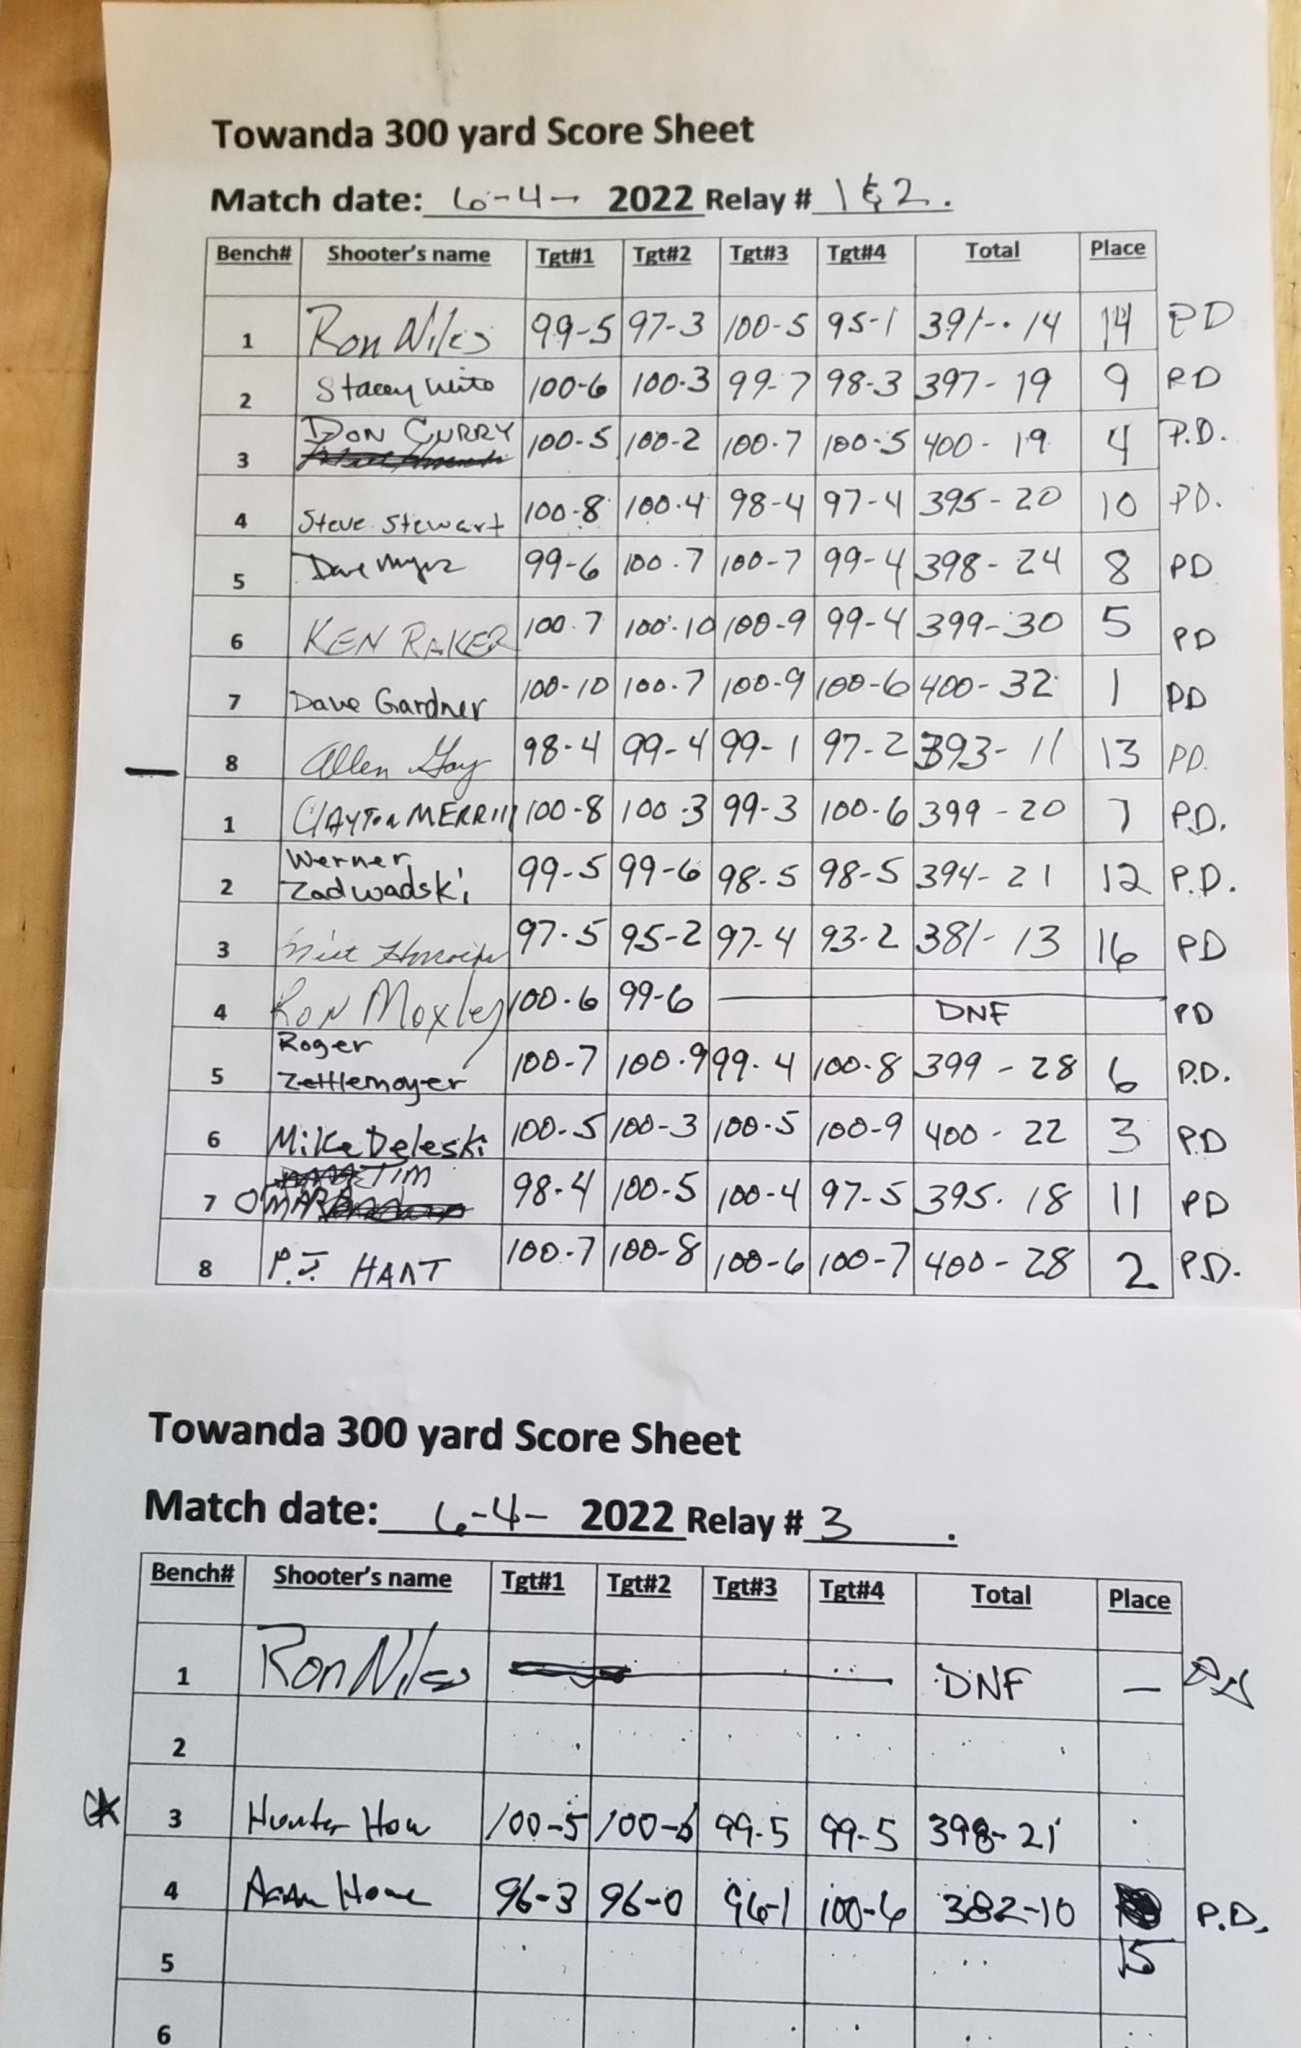 Towanda 300 yard Score Sheet
Match date: 6-4- 2022 Relay # 1 & 2.
Bench# Shooter's name Tgt#1 Tgt#2 Tgt#3 Tgt#4 Total Place
1 Ron Niles 99-5 97-3 100-5 95-1 391-14 14 PD
2 Stacey 100-6 100-3 99-7 98-3 397-19 9 PD
3 DON CURRY 100-5 100-2 100-7 100-5 400-19 4 P.D.
4 Steve Stewart 100-8 100-4 98-4 97-4 395-20 10 PD.
5 Dave 99-6 100-7 100-7 99-4 398-24 8 PD
6 KEN RAKER 100-7 100-10 100-9 99-4 399-30 5 PD
7 Dave Gardner 100-10 100-7 100-9 100-6 400-32 1 PD
8 Allen Gay 98-4 99-4 99-1 97-2 393-11 13 PD.
1 CLAYTON MERRIll 100-8 100-3 99-3 100-6 399-20 7 P.D.
2 Werner Zadwadski 99-5 99-6 98-5 98-5 394-21 12 P.D.
3 97-5 95-2 97-4 93-2 381-13 16 PD
4 RON Moxley 100-6 99-6 DNF PD
5 Roger Zettlemoyer 100-7 100-9 99-4 100-8 399-28 6 P.D.
6 Mike Deleski 100-5 100-3 100-5 100-9 400-22 3 P.D
7 TIM OMAR 98-4 100-5 100-4 97-5 395-18 11 PD
8 P.J. HART 100-7 100-8 100-6 100-7 400-28 2 P.D.
Towanda 300 yard Score Sheet
Match date: 6-4- 2022 Relay # 3.
Bench# Shooter's name Tgt#1 Tgt#2 Tgt#3 Tgt#4 Total Place
1 Ron Niles DNF —
2
3 Hunter 100-5 100-6 99-5 99-5 398-21
4 96-3 96-0 96-1 100-6 382-10 15 P.D.
5
6